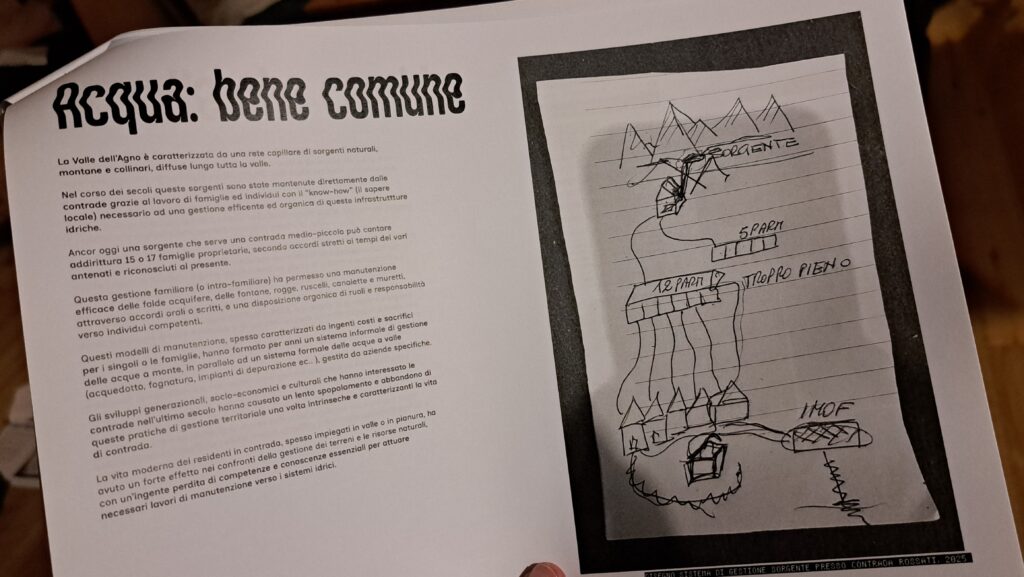 Acqua: bene comune
La Valle dell'Agno è caratterizzata da una rete capillare di sorgenti naturali,
montane e collinari, diffuse lungo tutta la valle.
Nel corso dei secoli queste sorgenti sono state mantenute direttamente dalle
contrade grazie al lavoro di famiglie ed individui con il "know-how" (il sapere
locale) necessario ad una gestione efficente ed organica di queste infrastrutture
idriche.
Ancor oggi una sorgente che serve una contrada medio-piccola può contare
addirittura 15 o 17 famiglie proprietarie, secondo accordi stretti ai tempi dei vari
antenati e riconosciuti al presente.
Questa gestione familiare (o intra-familiare) ha permesso una manutenzione
efficace delle falde acquifere, delle fontane, rogge, ruscelli, canalette e muretti,
attraverso accordi orali o scritti, e una disposizione organica di ruoli e responsabilità
verso individui competenti.
Questi modelli di manutenzione, spesso caratterizzati da ingenti costi e sacrifici
per i singoli o le famiglie, hanno formato per anni un sistema informale di gestione
delle acque a monte, in parallelo ad un sistema formale delle acque a valle
(acquedotto, fognatura, impianti di depurazione ec.. ), gestita da aziende specifiche.
Gli sviluppi generazionali, socio-economici e culturali che hanno interessato le
contrade nell'ultimo secolo hanno causato un lento spopolamento e abbandono di
queste pratiche di gestione territoriale una volta intrinseche e caratterizzanti la vita
di contrada.
La vita moderna dei residenti in contrada, spesso impiegati in valle o in pianura, ha
avuto un forte effetto nei confronti della gestione dei terreni e le risorse naturali,
con un'ingente perdita di competenze e conoscenze essenziali per attuare
necessari lavori di manutenzione verso i sistemi idrici.
SORGENTE
5 PARTI
12 PARTI
TROPPO PIENO
IMOF
DISEGNO SISTEMA DI GESTIONE SORGENTE PRESSO CONTRADA ROSSATI, 2025